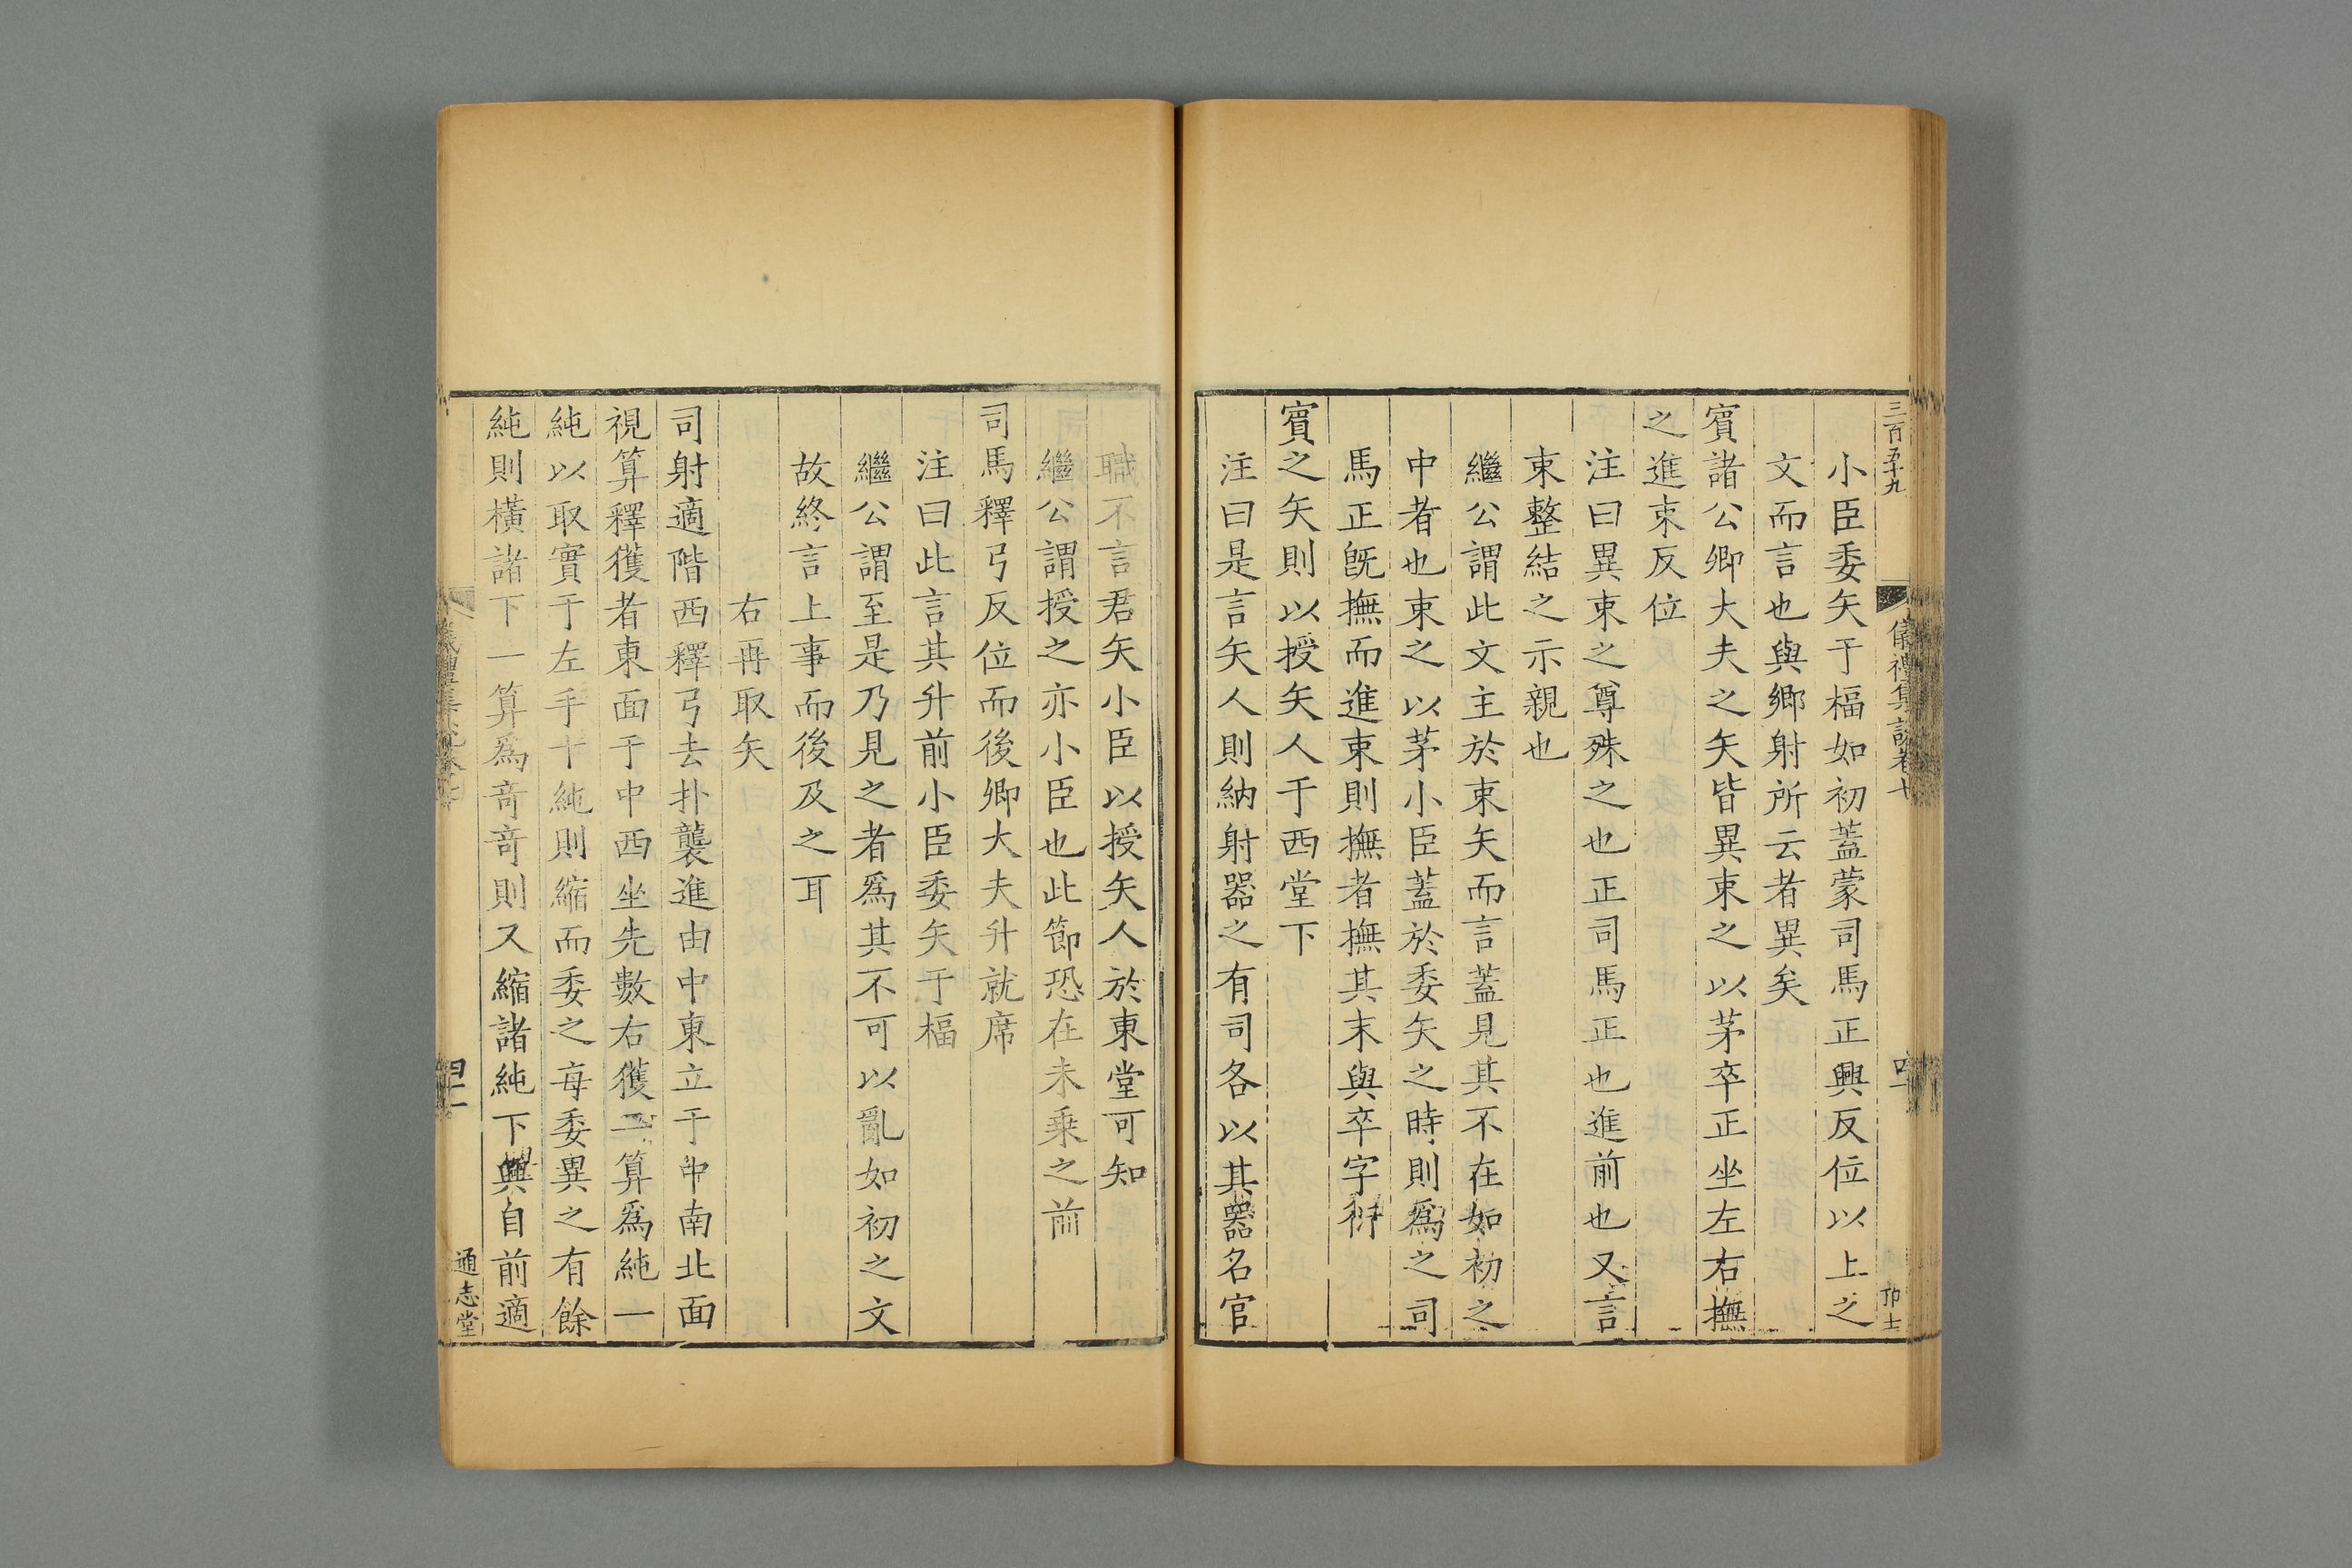 三百五十九
儀禮集說卷七
四一
卯士
小臣委矢于楅如初蓋蒙司馬正興反位以上之
文而言也與鄉射所云者異矣
賓諸公卿大夫之矢皆異束之以茅卒正坐左右撫
之進束反位
注曰異束之尊殊之也正司馬正也進前也又言
束整結之示親也
繼公謂此文主於束矢而言蓋見其不在如初之
中者也束之以茅小臣蓋於委矢之時則爲之司
馬正旣撫而進束則撫者撫其末與卒字衍
賓之矢則以授矢人于西堂下
注曰是言矢人則納射器之有司各以其器名官
職不言君矢小臣以授矢人於東堂可知
繼公謂授之亦小臣也此節恐在未乘之前
司馬釋弓反位而後卿大夫升就席
注曰此言其升前小臣委矢于楅
繼公謂至是乃見之者爲其不可以亂如初之文
故終言上事而後及之耳
右再取矢
司射適階西釋弓去扑襲進由中東立于中南北面
視算釋獲者東面于中西坐先數右獲二算爲純一
純以取實于左手十純則縮而委之每委異之有餘
純則橫諸下一算爲奇奇則又縮諸純下興自前適
儀禮集說卷七
四一
通志堂